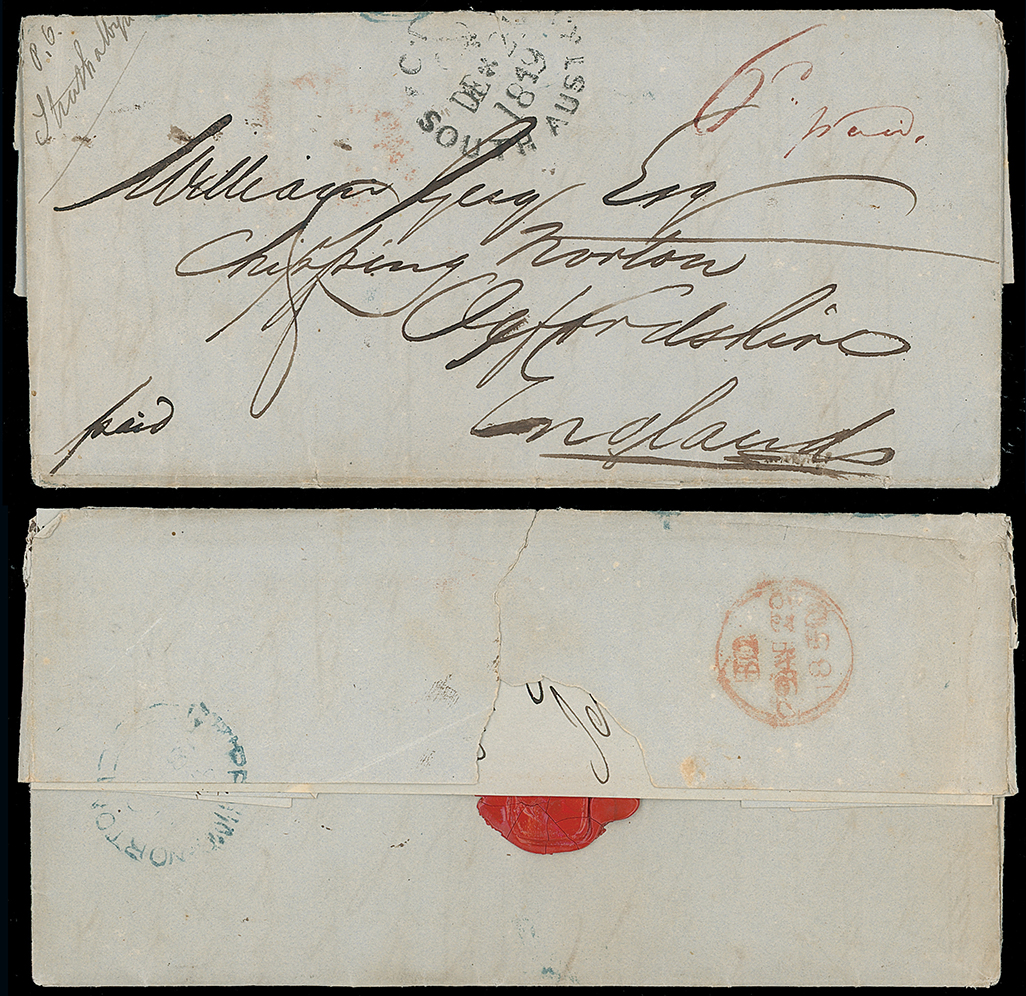 P.O.
Strathalbyn
DE
1849
SOUTH AUST
Paid.
William Guy Esq
Chipping Norton
Oxffordshire
England
paid
1850
NORTON